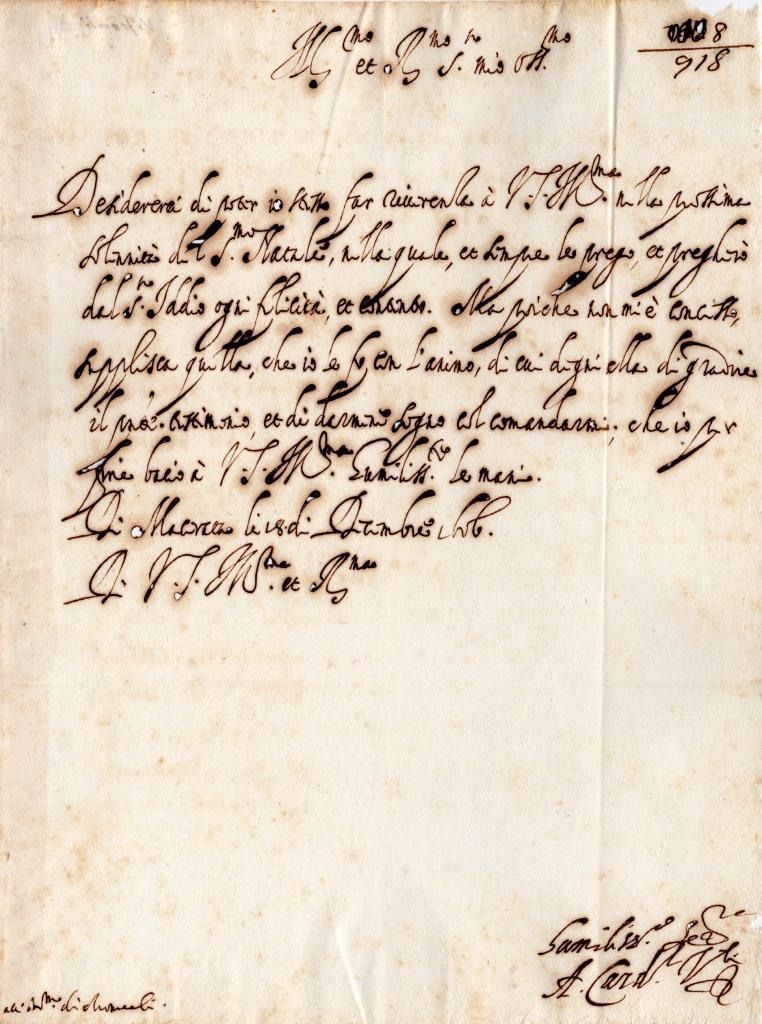 Ill.mo et R.mo S.r mio oss.mo
8
918
Desidererei di poter io stesso far riverenza à V. S. Ill.ma nella prossima
solennità del S.mo Natale, nella quale, et sempre le prego, et pregherò
dal S.r Iddio ogni felicità, et contento. Ma poiche non mi è concesso,
supplisca quella, che io le fo con l'animo, di cui degni ella di gradire
il pnte. testimonio, et di darmene segno col comandarmi; che io per
fine bacio à V. S. Ill.ma humiliss.te le mani.
Di Macerata li 18 di Dicembre 1606.
Di V. S. Ill.ma et R.ma
Humiliss.o Ser.re
A. Card.l